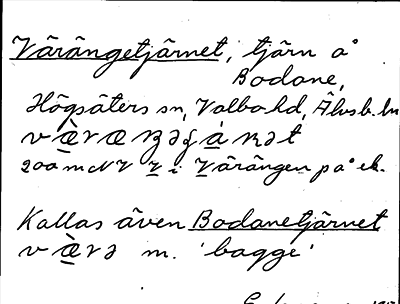 Värängetjärnet, tjärn å
Bodane,
Högsäters sn, Valbo hd, Älvsb. ln
200 m NV V i Värängen på ek.
Kallas även Bodanetjärnet
m. 'bagge'